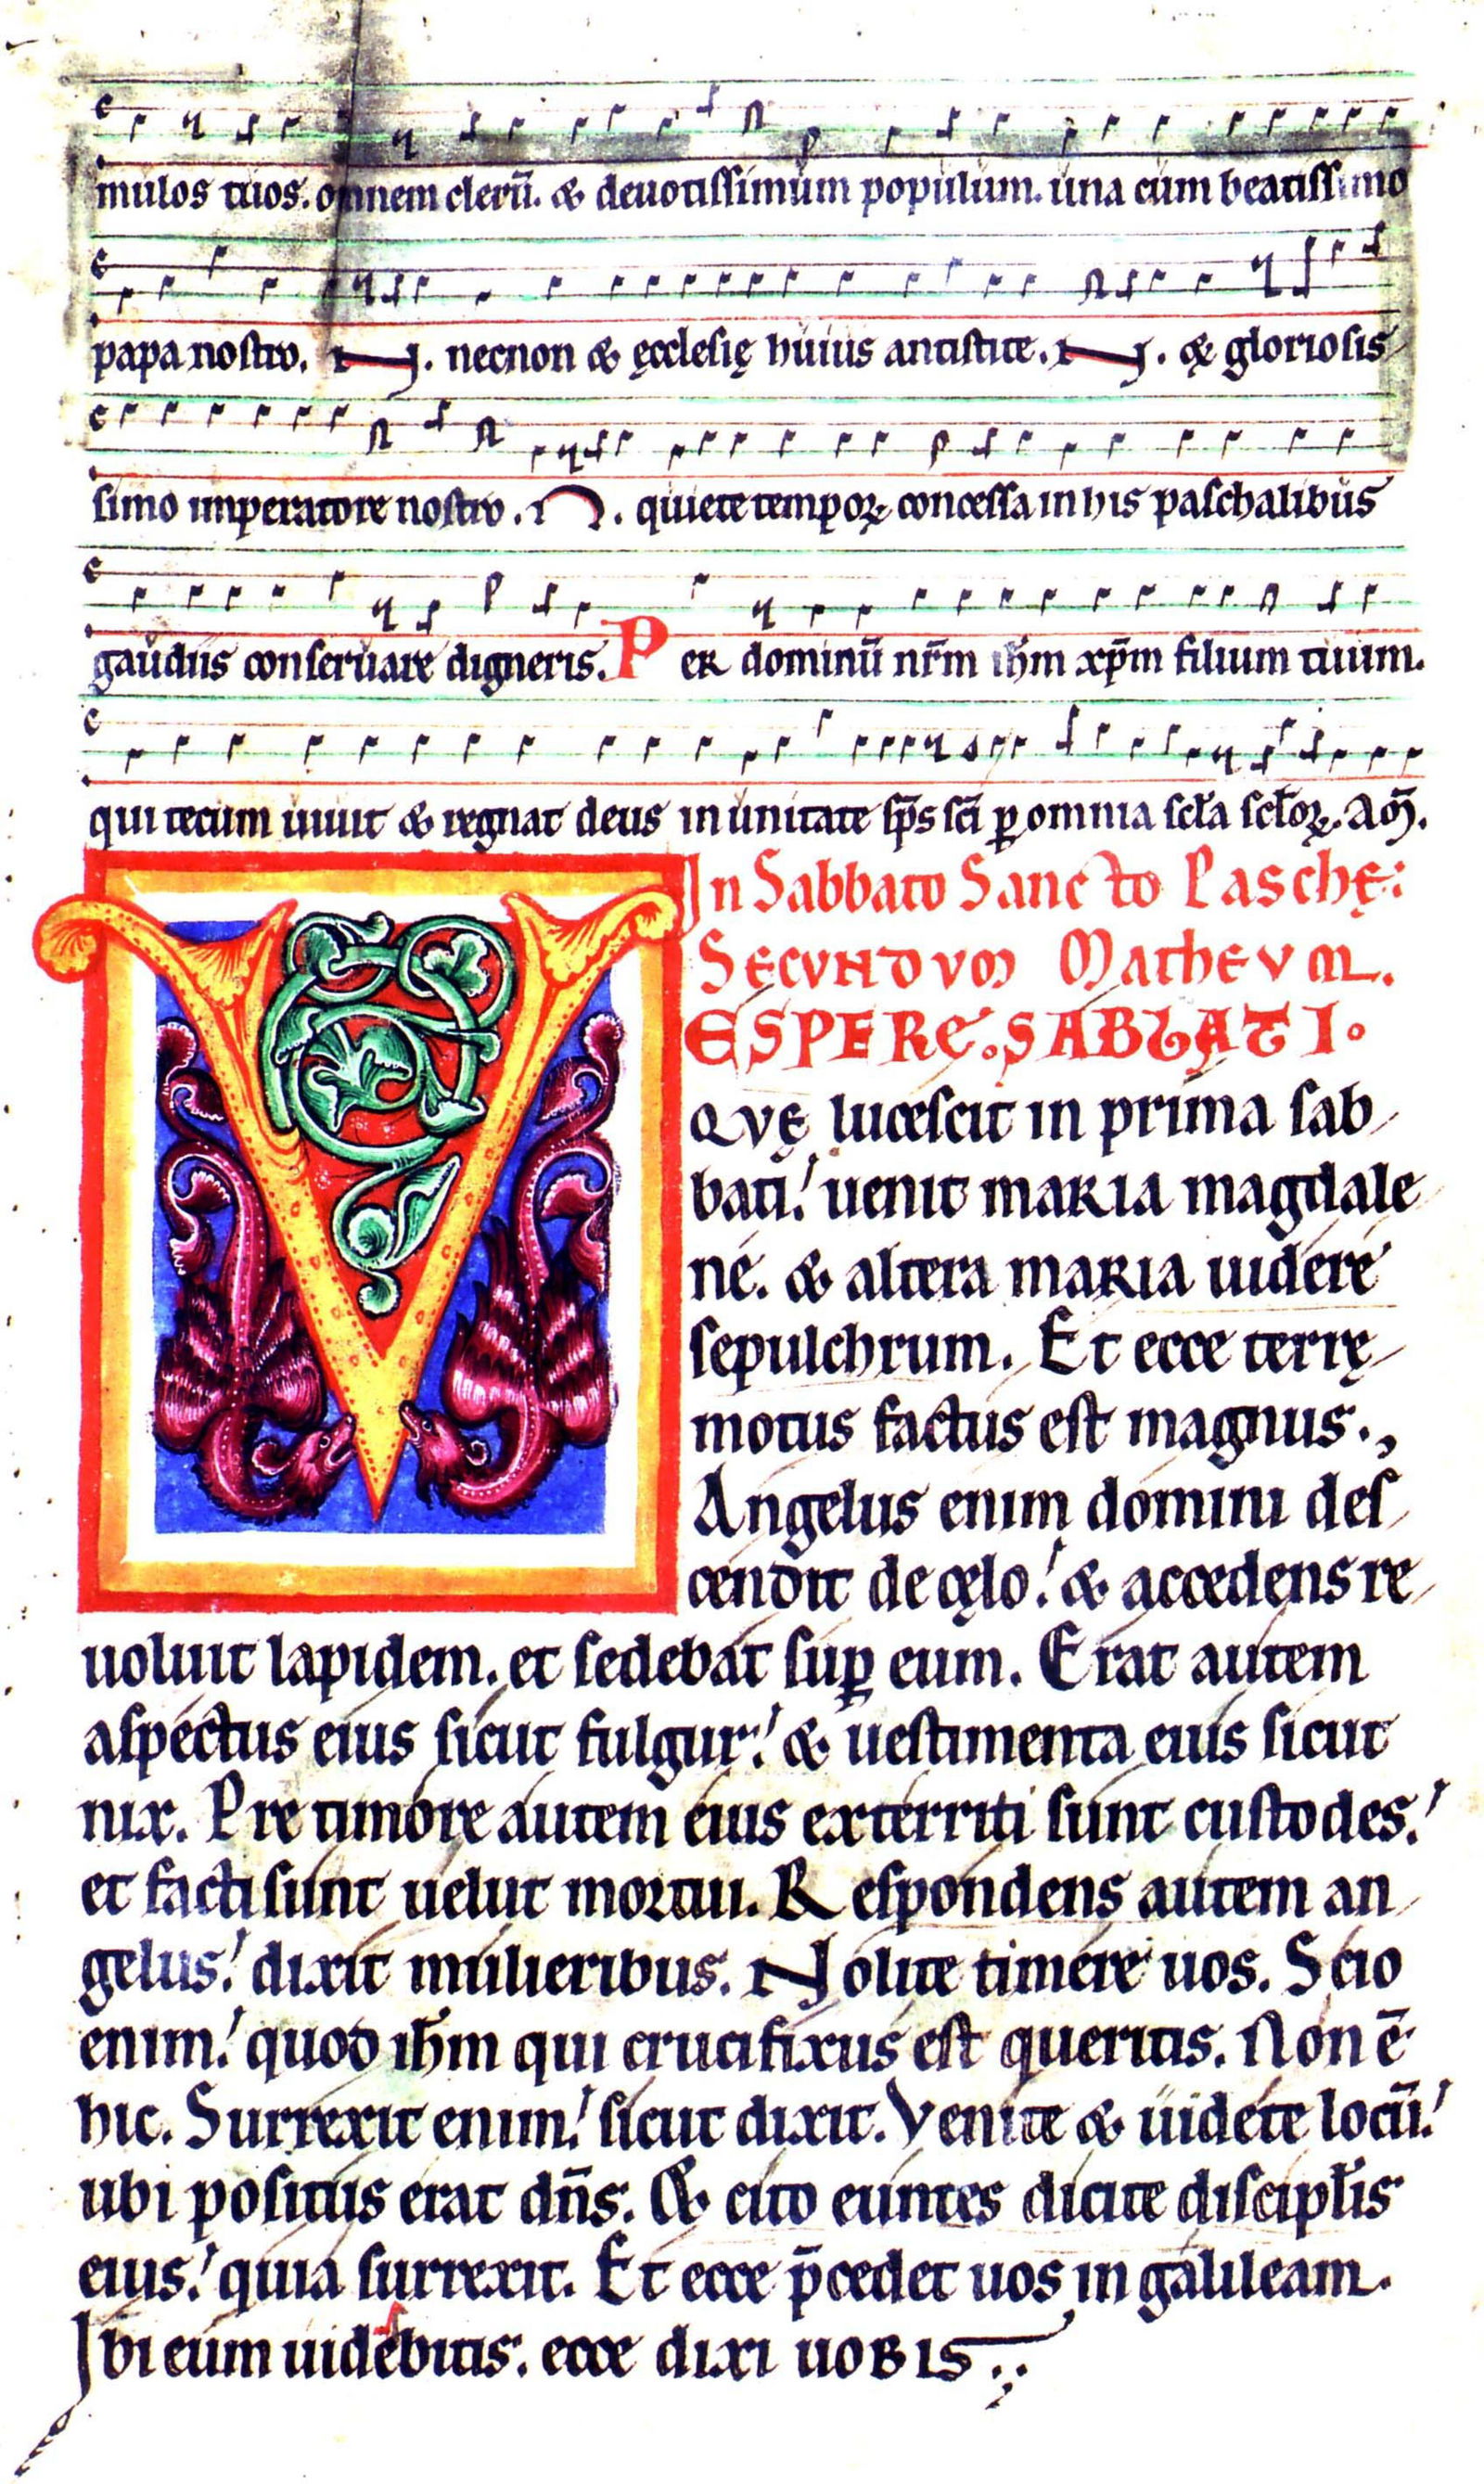 mulos tuos. omnem clerū. & deuotissimum populum. una cum beatissimo
papa nostro. N. necnon & ęcclesię huius antistite. N. & gloriosis
simo imperatore nostro. N. quiete temporꝝ concessa in his paschalibus
gaudiis conseruare digneris. Per dominū nr̄m ih̄m xp̄m filium tuum.
qui tecum uiuit & regnat deus in unitate sp̄s sc̄i ꝑ omnia scl̄a scl̄oꝝ. Am̄.
In Sabbato Sancto Paschę:
SECVNDVM MATHEVM.
VESPERE. SABBATI.
QVĘ lucescit in prima sab
bati. uenit maria magdale
ne. & altera maria uidere
sepulchrum. Et ecce terrę
motus factus est magnus.,
Angelus enim domini des
cendit de cęlo. & accedens re
uoluit lapidem. et sedebat suꝑ eum. Erat autem
aspectus eius sicut fulgur. & uestimenta eius sicut
nix. Pre timore autem eius exterriti sunt custodes.
et facti sunt uelut mortui. Respondens autem an
gelus. dixit mulieribus. Nolite timere uos. Scio
enim. quod ih̄m qui crucifixus est queritis. Non ē
hic. Surrexit enim. sicut dixit. Venite & uidete locū.
ubi positus erat dn̄s. & cito euntes dicite discipl̄is
eius. quia surrexit. Et ecce p̄cedet uos in galileam.
Ibi eum uidebitis. ecce dixi uobis